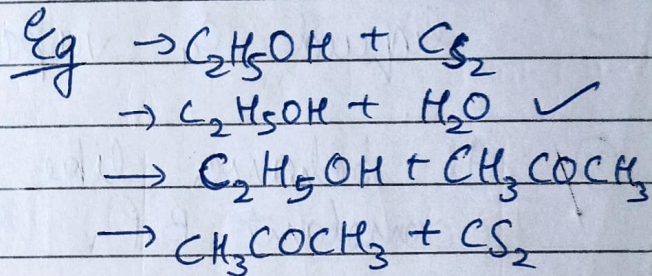 Eg → C₂H₅OH + CS₂
→ C₂H₅OH + H₂O ✓
→ C₂H₅OH + CH₃COCH₃
→ CH₃COCH₃ + CS₂